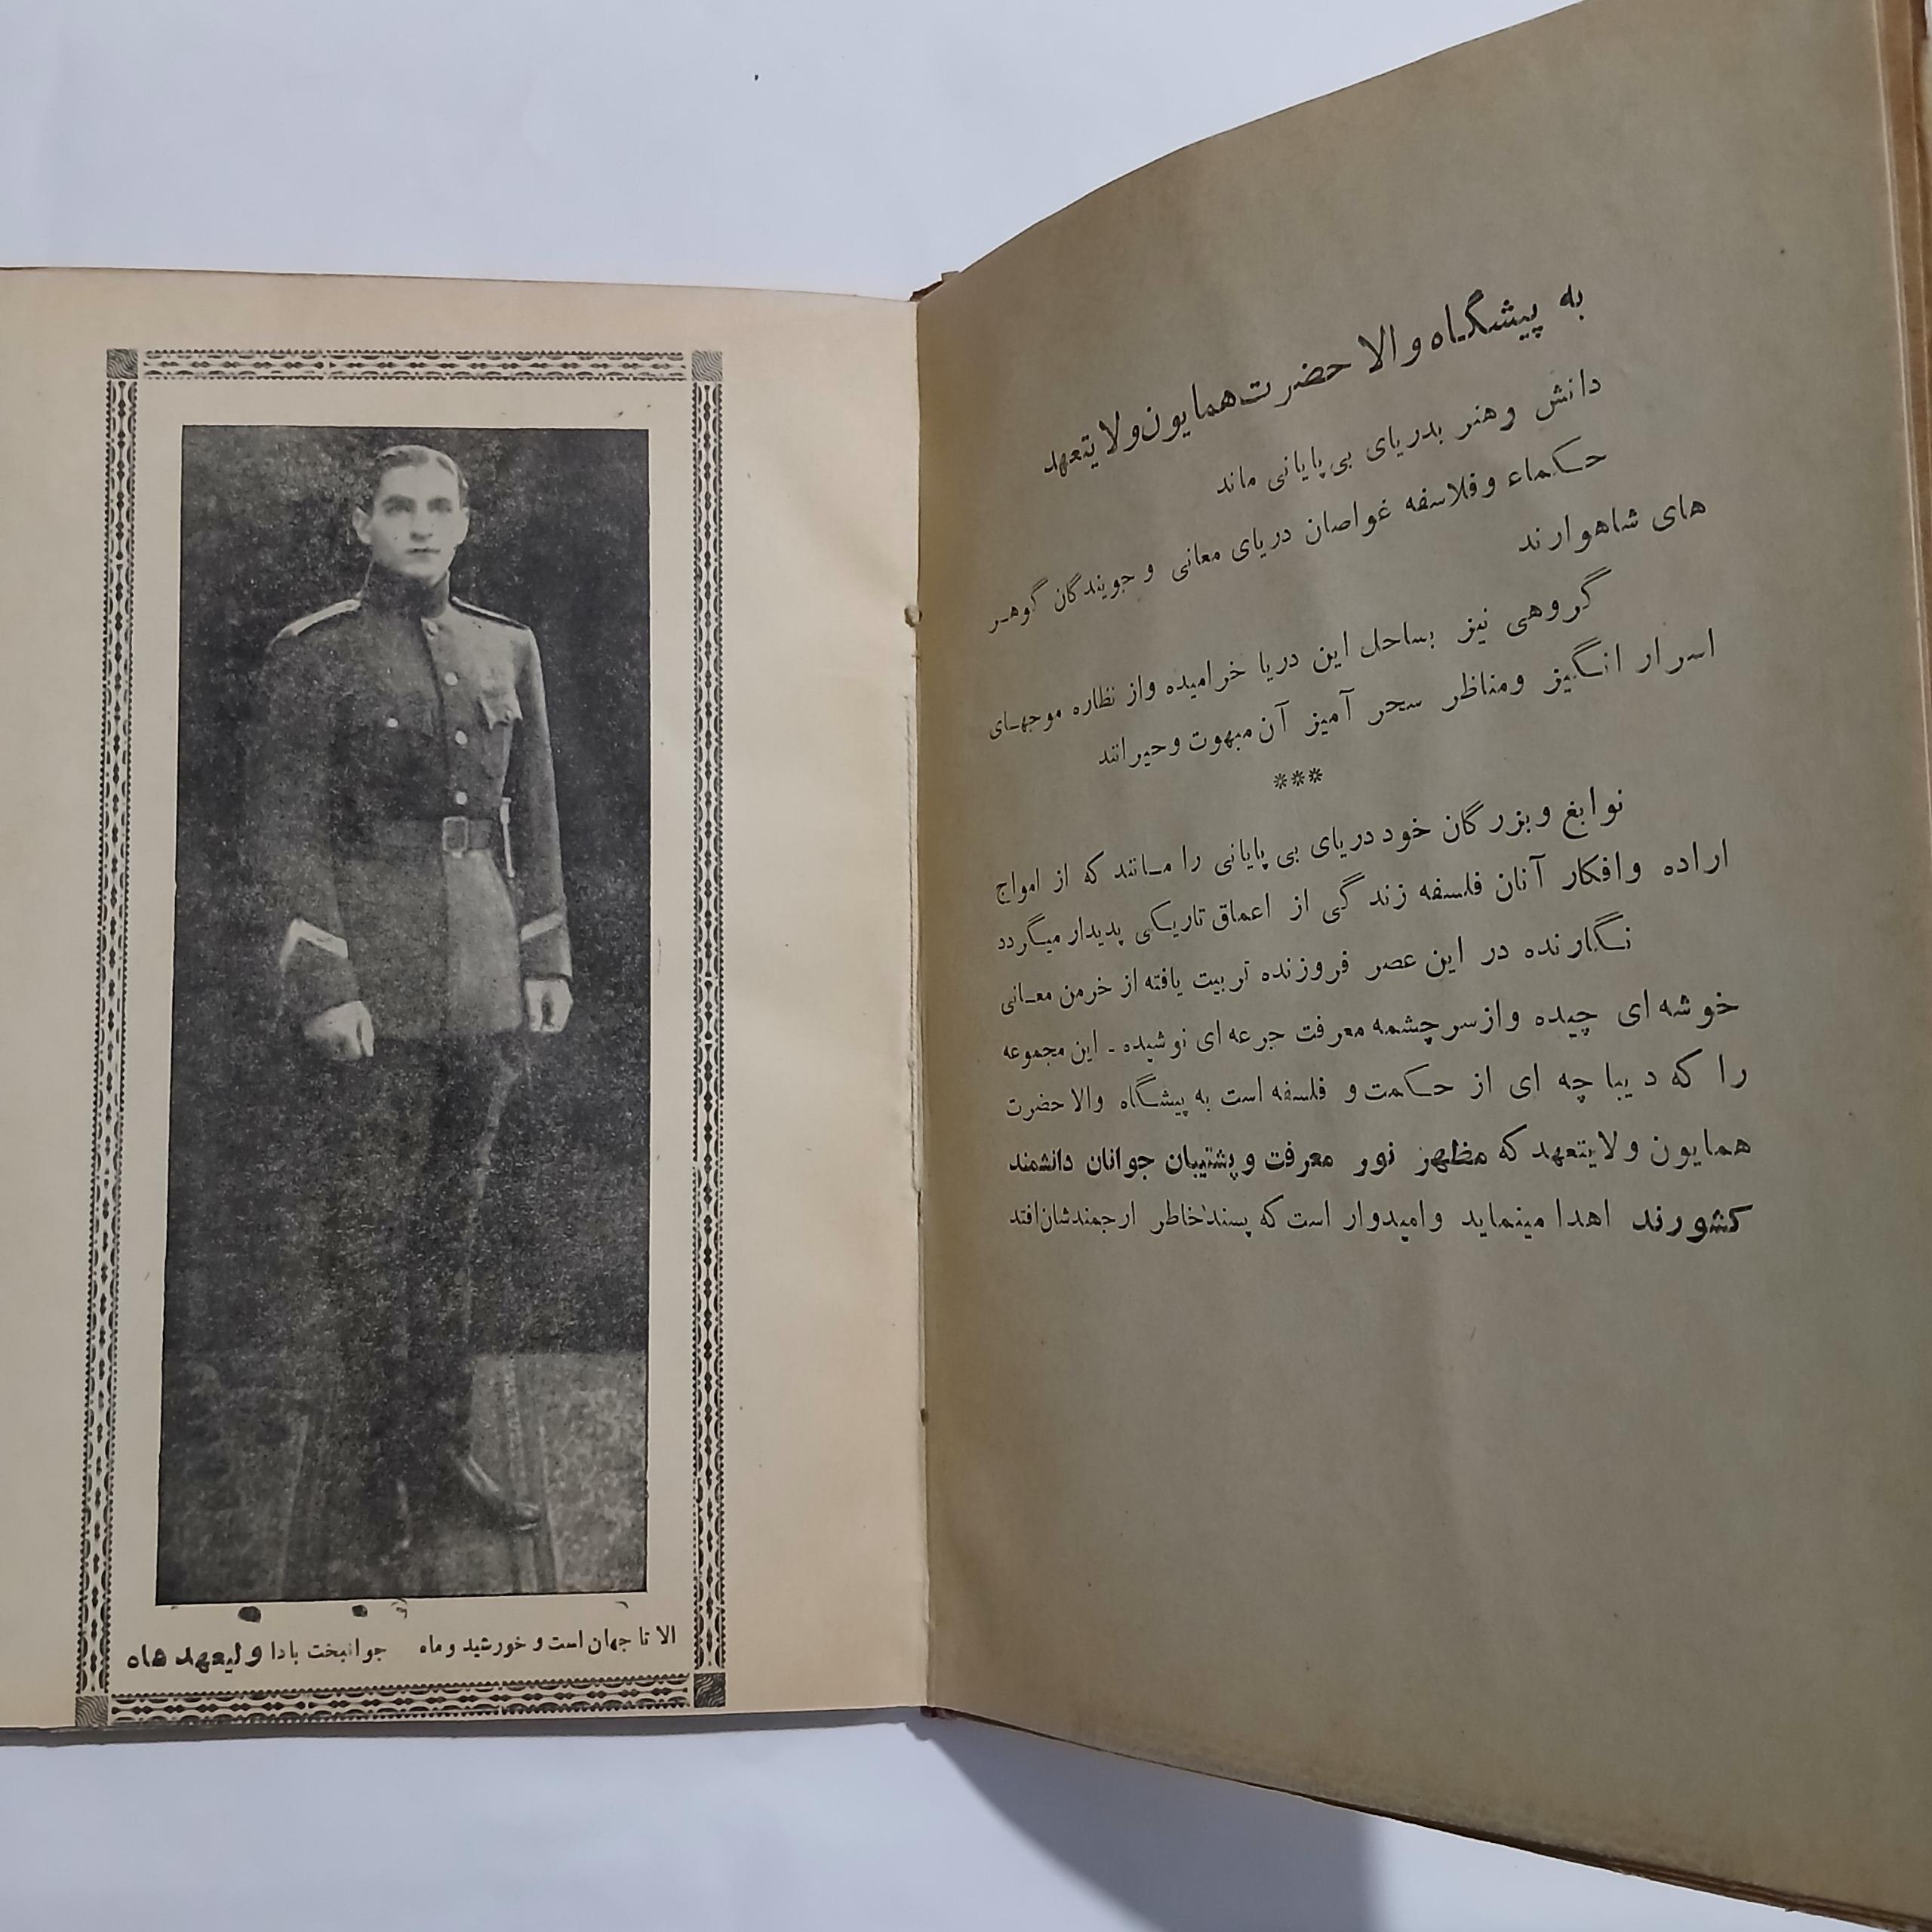 به پیشگاه والا حضرت همایون ولایتعهد
دانش وهنر بدریای بی پایانی ماند
حکماء وفلاسفه غواصان دریای معانی و جویندگان گوهر
های شاهوارند
گروهی نیز بساحل این دریا خرامیده واز نظاره موجهای
اسرار انگیز ومناظر سحر آمیز آن مبهوت وحیرانند
***
نوابغ وبزرگان خود دریای بی پایانی را مانند که از امواج
اراده وافکار آنان فلسفه زندگی از اعماق تاریکی پدیدار میگردد
نگارنده در این عصر فروزنده تربیت یافته از خرمن معانی
خوشه ای چیده وازسرچشمه معرفت جرعه ای نوشیده - این مجموعه
را که دیباچه ای از حکمت و فلسفه است به پیشگاه والا حضرت
همایون ولایتعهد که مظهر نور معرفت وپشتیبان جوانان دانشمند
کشورند اهدا مینماید وامیدوار است که پسند خاطر ارجمندشان افتد
الا تا جهان است و خورشید وماه جوانبخت بادا ولیعهد شاه